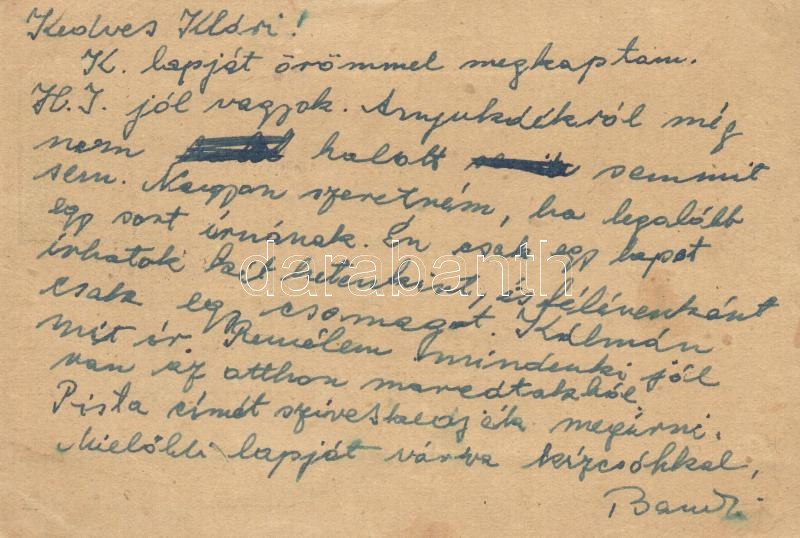 Kedves Klári!
K. lapját örömmel megkaptam.
H.I. jól vagyok. Anyukáékról még
nem halott semmit
sem. Nagyon szeretném, ha legalább
egy sort írnának. Én csak egy lapot
írhatok két hetenként, és félévenként
csak egy csomagot. Kálmán
mit ír. Remélem mindenki jól
van az otthon maradtakból
Pista címét sziveskedjék megírni.
Mielőbbi lapját várva kézcsókkal,
Bandi
darabanth